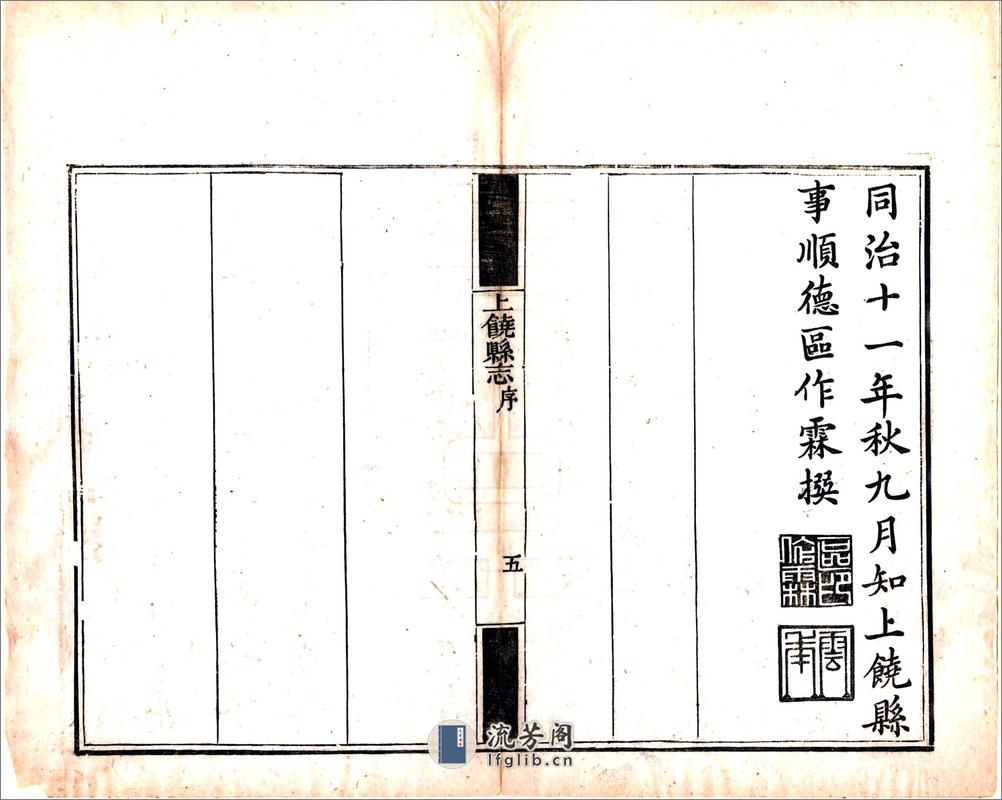 同治十一年秋九月知上饒縣
事順德區作霖撰
上饒縣志
序
五
流芳阁
lfglib.cn